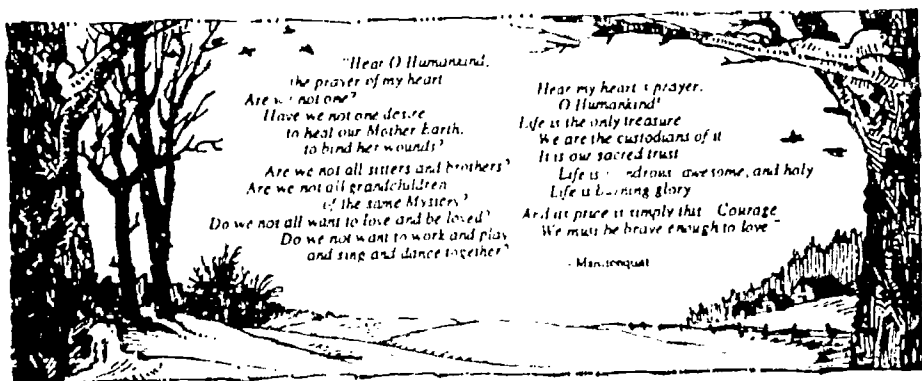 "Hear O Humankind,
the prayer of my heart
Are we not one?
Have we not one desire
to heal our Mother Earth,
to bind her wounds?
Are we not all sisters and brothers?
Are we not all grandchildren
of the same Mystery?
Do we not all want to love and be loved?
Do we not want to work and play
and sing and dance together?
Hear my heart's prayer,
O Humankind!
Life is the only treasure
We are the custodians of it
It is our sacred trust
Life is wondrous, awesome, and holy
Life is burning glory
And its price is simply this Courage
We must be brave enough to love"
- Manitonquat